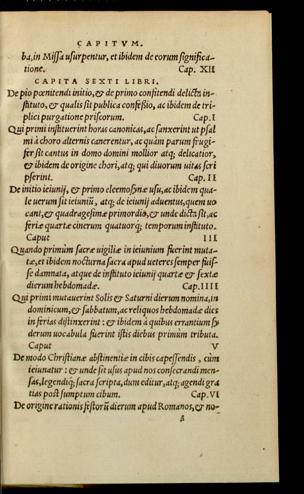 CAPITVM.
ba, in Missa usurpentur, et ibidem de eorum significa-
tione. Cap. XII
CAPITA SEXTI LIBRI.
De pio pœnitendi initio, & de primo confitendi delicta in-
stituto, & qualis sit publica confeßio, ac ibidem de tri-
plici purgatione priscorum. Cap. I
Qui primi instituerint horas canonicas, ac sanxerint ut psal
mi à choro alternis canerentur, ac quàm parum frugi-
fer sit cantus in domo domini mollior atq; delicatior,
& ibidem de origine chori, atq; qui diuorum uitas scri
pserint. Cap. II
De initio ieiunij, & primo eleemosynæ usu, ac ibidem qua-
le uerum sit ieiuniũ, atq; de ieiunij aduentus, quem uo
cant, & quadragesimæ primordio, & unde dicta sit, ac
feriæ quartæ cinerum quatuorq; temporum instituto.
Caput III
Quando primùm sacræ uigiliæ in ieiunium fuerint muta-
tæ, et ibidem nocturna sacra apud ueteres semper fuis-
se damnata, atque de instituto ieiunij quartæ & sextæ
dierum hebdomadæ. Cap. IIII
Qui primi mutauerint Solis & Saturni dierum nomina, in
dominicum, & sabbatum, ac reliquos hebdomadæ dies
in ferias distinxerint: & ibidem à quibus errantium sy
derum uocabula fuerint istis diebus primùm tributa.
Caput V
De modo Christianæ abstinentiæ in cibis capessendis, cùm
ieiunatur: & unde sit usus apud nos consecrandi men-
sas, legendiq; sacra scripta, dum editur, atq; agendi gra
tias post sumptum cibum. Cap. VI
De origine rationis festorũ dierum apud Romanos, & no-